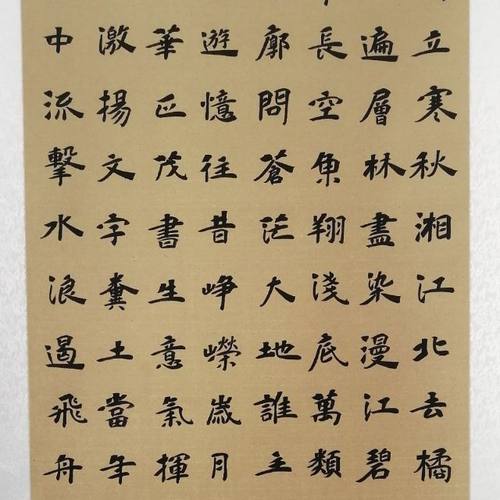 立寒秋湘江北去橘
遍層林盡染漫江碧
長空魚翔淺底萬類
廓問蒼茫大地誰主
遊憶往昔崢嶸歲月
華正茂書生意氣揮
激揚文字糞土當年
中流擊水浪遏飛舟